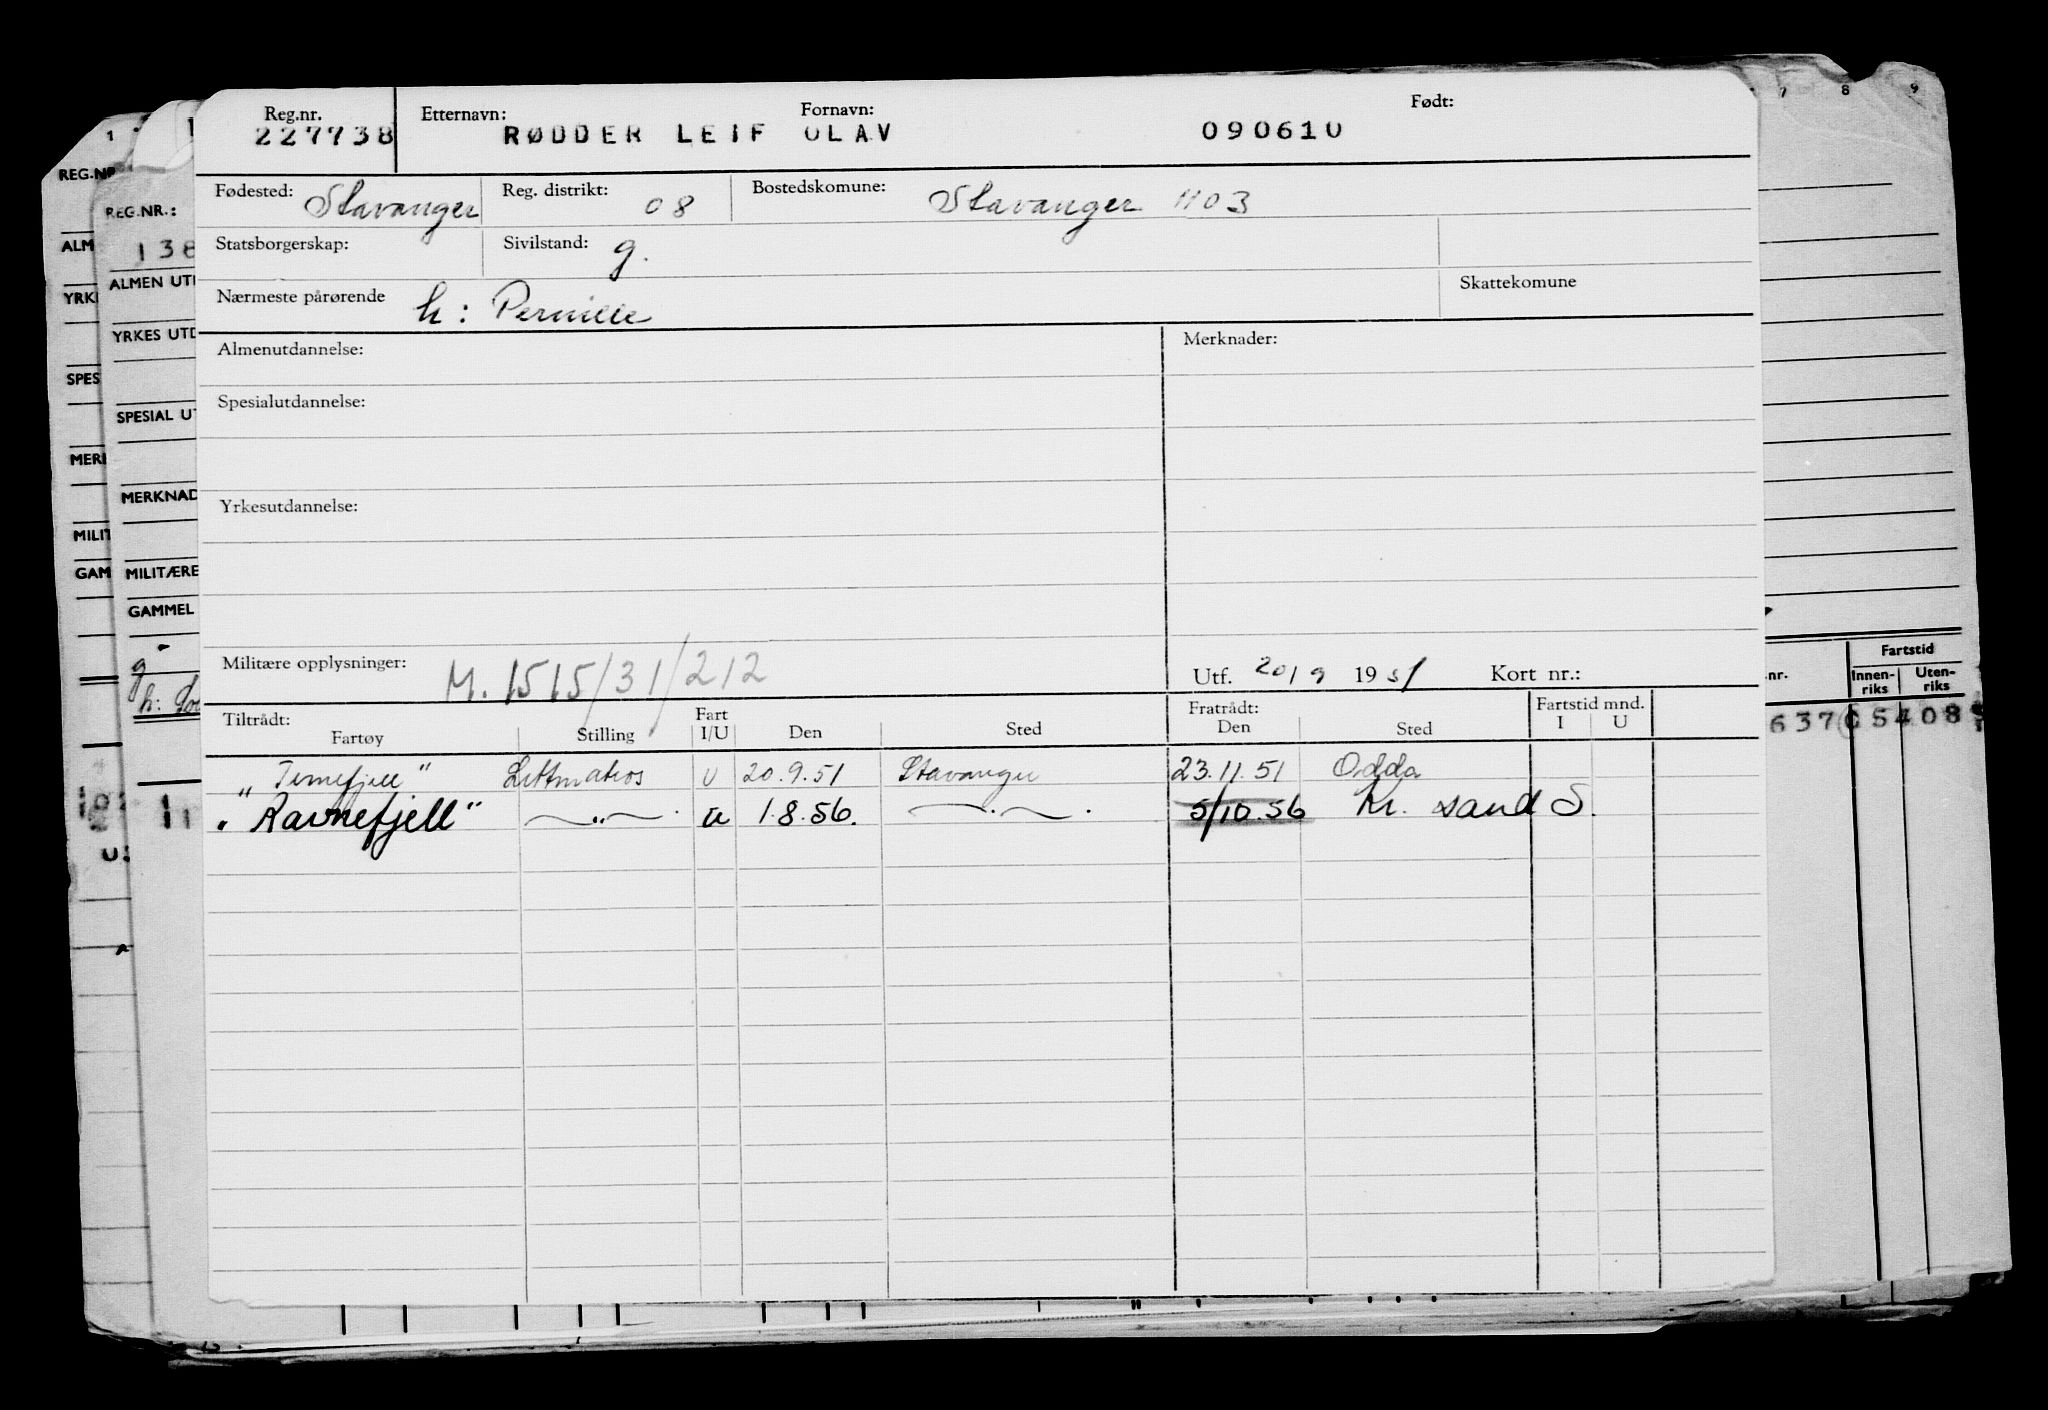 Reg.nr. Etternavn: Fornavn: Født:
227738 RØDDER LEIF OLAV 090610
Fødested: Stavanger Reg. distrikt: 08 Bostedskomune: Stavanger 1103
Statsborgerskap: Sivilstand: g.
Nærmeste pårørende h: Pernille Skattekomune
Almenutdannelse: Merknader:
Spesialutdannelse:
Yrkesutdannelse:
Militære opplysninger: M. 1515/31/212 Utf. 20/9 1951 Kort nr.:
Tiltrådt: Fart Fratrådt: Fartstid mnd.
Fartøy Stilling I/U Den Sted Den Sted I U
"Ternefjell" Lettmatros U 20.9.51 Stavanger 23.11.51 Odda
"Ravnefjell" —"— u 1.8.56. —"— 5/10.56 Kr. sand S.
1 7 8 9
REG.NR
REG.NR.:
ALM 138
ALMEN UT
YRK
YRKES UTD
SPES
SPESIAL UT
MER
MERKNAD
MILIT
GAM MILITÆRE
GAMMEL
g
h:
nr. Fartstid
Innen-riks Uten-riks
637
11